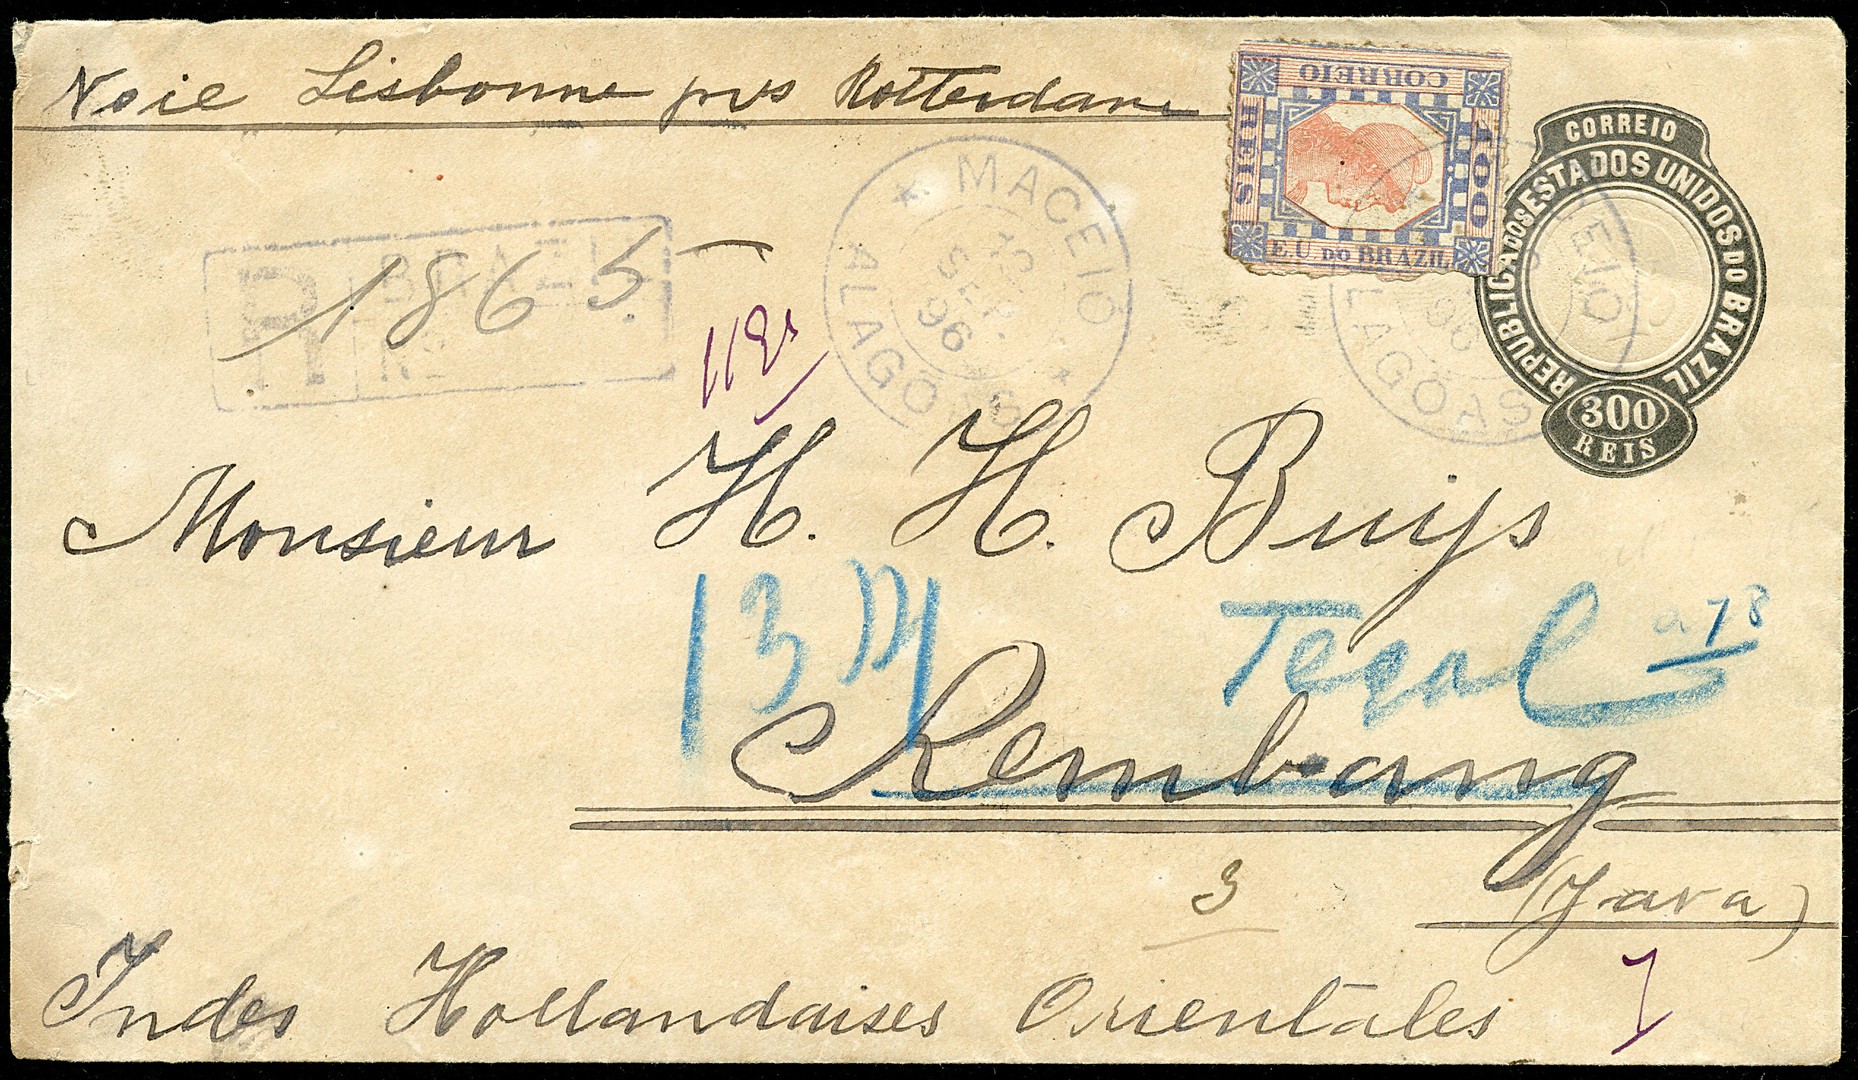 Voie Lisbonne pr Rotterdam
CORREIO
100
REIS
E.U DO BRAZIL
CORREIO
REPUBLICA DOS ESTADOS UNIDOS DO BRAZIL
300
REIS
MACEIÓ
SET.
96
ALAGÔAS
CEIÓ
96
LAGÔAS
R BRAZIL
Nº
1865
Monsieur H. H. Buijs
13
Tegal
Rembang
3
(Java)
Indes Hollandaises Orientales